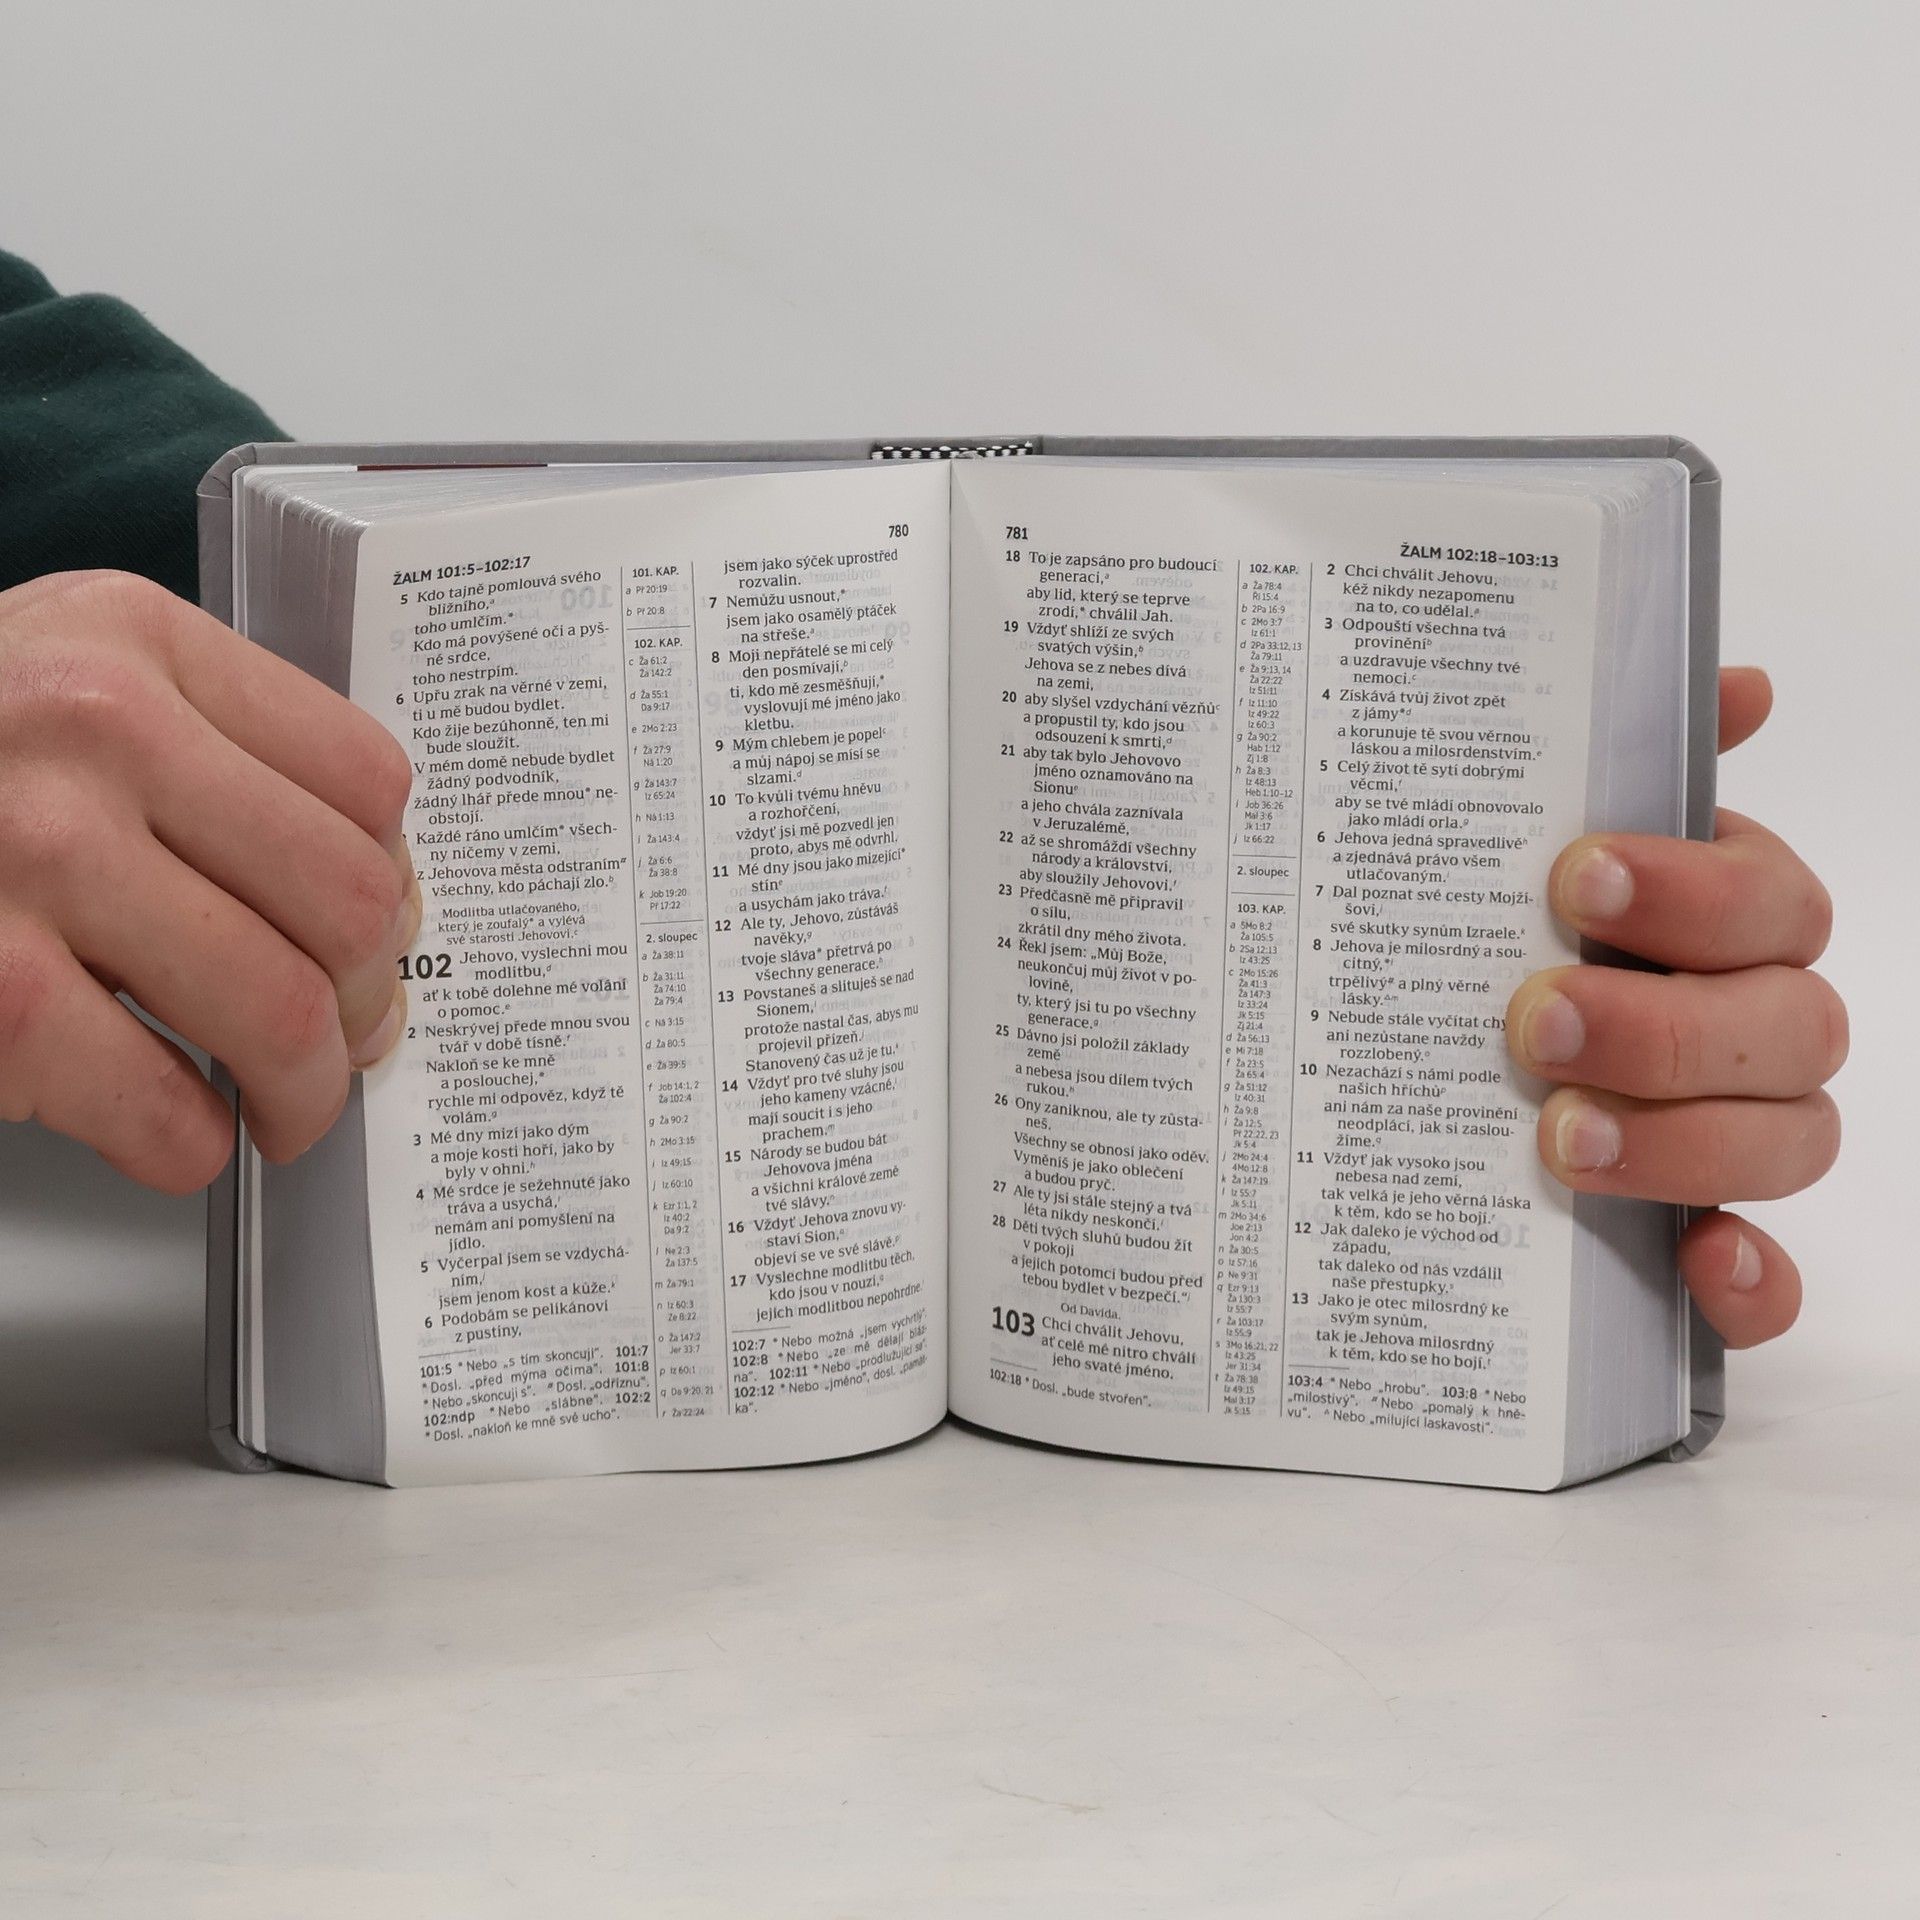 780
ŽALM 101:5–102:17
5 Kdo tajně pomlouvá svého
bližního,ᵃ
toho umlčím.*
Kdo má povýšené oči a pyš-
né srdce,
toho nestrpím.
6 Upřu zrak na věrné v zemi,
ti u mě budou bydlet.
Kdo žije bezúhonně, ten mi
bude sloužit.
V mém domě nebude bydlet
žádný podvodník,
žádný lhář přede mnou* ne-
obstojí.
Každé ráno umlčím* všech-
ny ničemy v zemi,
z Jehovova města odstraním#
všechny, kdo páchají zlo.ᵇ
Modlitba utlačovaného,
který je zoufalý* a vylévá
své starosti Jehovovi.ᶜ
102 Jehovo, vyslechni mou
modlitbu,ᵈ
ať k tobě dolehne mé volání
o pomoc.ᵉ
2 Neskrývej přede mnou svou
tvář v době tísně.ᶠ
Nakloň se ke mně
a poslouchej,*
rychle mi odpověz, když tě
volám.ᵍ
3 Mé dny mizí jako dým
a moje kosti hoří, jako by
byly v ohni.ʰ
4 Mé srdce je sežehnuté jako
tráva a usychá,ⁱ
nemám ani pomyšlení na
jídlo.
5 Vyčerpal jsem se vzdychá-
ním,ʲ
jsem jenom kost a kůže.ᵏ
6 Podobám se pelikánovi
z pustiny,
101:5 * Nebo „s tím skoncuji“. 101:7
* Dosl. „před mýma očima“. 101:8
* Nebo „skoncuji s“. # Dosl. „odříznu“.
102:ndp * Nebo „slábne“. 102:2
* Dosl. „nakloň ke mně své ucho“.
101. KAP.
a Př 20:19
b Př 20:8
102. KAP.
c Ža 61:2
Ža 142:2
d Ža 55:1
Da 9:17
e 2Mo 2:23
f Ža 27:9
Ná 1:20
g Ža 143:7
Iz 65:24
h Ná 1:13
i Ža 143:4
j Ža 6:6
Ža 38:8
k Job 19:20
Př 17:22
2. sloupec
a Ža 38:11
b Ža 31:11
Ža 74:10
Ža 79:4
c Ná 3:15
d Ža 80:5
e Ža 39:5
f Job 14:1, 2
Ža 102:4
g Ža 90:2
h 2Mo 3:15
i Iz 49:15
j Iz 60:10
k Ezr 1:1, 2
Iz 40:2
Da 9:2
l Ne 2:3
Ža 137:5
m Ža 79:1
n Iz 60:3
Ze 8:22
o Ža 147:2
Jer 33:7
p Iz 60:1
q Da 9:20, 21
r Ža 22:24
jsem jako sýček uprostřed
rozvalin.
7 Nemůžu usnout,*
jsem jako osamělý ptáček
na střeše.ᵃ
8 Moji nepřátelé se mi celý
den posmívají,ᵇ
ti, kdo mě zesměšňují,*
vyslovují mé jméno jako
kletbu.
9 Mým chlebem je popelᶜ
a můj nápoj se mísí se
slzami.ᵈ
10 To kvůli tvému hněvu
a rozhořčení,
vždyť jsi mě pozvedl jen
proto, abys mě odvrhl.
11 Mé dny jsou jako mizející*
stínᵉ
a usychám jako tráva.ᶠ
12 Ale ty, Jehovo, zůstáváš
navěky,ᵍ
tvoje sláva* přetrvá po
všechny generace.ʰ
13 Povstaneš a slituješ se nad
Sionem,ⁱ
protože nastal čas, abys mu
projevil přízeň.ʲ
Stanovený čas už je tu.ᵏ
14 Vždyť pro tvé sluhy jsou
jeho kameny vzácné,ˡ
mají soucit i s jeho
prachem.ᵐ
15 Národy se budou bát
Jehovova jména
a všichni králové země
tvé slávy.ⁿ
16 Vždyť Jehova znovu vy-
staví Sion,ᵒ
objeví se ve své slávě.ᵖ
17 Vyslechne modlitbu těch,
kdo jsou v nouzi,q
jejich modlitbou nepohrdne.ʳ
102:7 * Nebo možná „jsem vychrtlý“.
102:8 * Nebo „ze mě dělají bláz-
na“. 102:11 * Nebo „prodlužující se“.
102:12 * Nebo „jméno“, dosl. „památ-
ka“.
781
ŽALM 102:18–103:13
18 To je zapsáno pro budoucí
generaci,ᵃ
aby lid, který se teprve
zrodí,* chválil Jah.
19 Vždyť shlíží ze svých
svatých výšin,ᵇ
Jehova se z nebes dívá
na zemi,
20 aby slyšel vzdychání vězňůᶜ
a propustil ty, kdo jsou
odsouzeni k smrti,ᵈ
21 aby tak bylo Jehovovo
jméno oznamováno na
Sionuᵉ
a jeho chvála zaznívala
v Jeruzalémě,
22 až se shromáždí všechny
národy a království,
aby sloužily Jehovovi.ᶠ
23 Předčasně mě připravil
o sílu,
zkrátil dny mého života.
24 Řekl jsem: „Můj Bože,
neukončuj můj život v po-
lovině,
ty, který jsi tu po všechny
generace.ᵍ
25 Dávno jsi položil základy
země
a nebesa jsou dílem tvých
rukou.ʰ
26 Ony zaniknou, ale ty zůsta-
neš.
Všechny se obnosí jako oděv.
Vyměníš je jako oblečení
a budou pryč.
27 Ale ty jsi stále stejný a tvá
léta nikdy neskončí.ⁱ
28 Děti tvých sluhů budou žít
v pokoji
a jejich potomci budou před
tebou bydlet v bezpečí.“ʲ
Od Davida.
103 Chci chválit Jehovu,
ať celé mé nitro chválí
jeho svaté jméno.
102:18 * Dosl. „bude stvořen“.
102. KAP.
a Ža 78:4
Ří 15:4
b 2Pa 16:9
c 2Mo 3:7
Iz 61:1
d 2Pa 33:12, 13
Ža 79:11
e Ža 9:13, 14
Ža 22:22
Iz 51:11
f Iz 11:10
Iz 49:22
Iz 60:3
g Ža 90:2
Hab 1:12
Zj 1:8
h Ža 8:3
Iz 48:13
Heb 1:10–12
i Job 36:26
Mal 3:6
Jk 1:17
j Iz 66:22
2. sloupec
103. KAP.
a 5Mo 8:2
Ža 105:5
b 2Sa 12:13
Iz 43:25
c 2Mo 15:26
Ža 41:3
Ža 147:3
Iz 33:24
Jk 5:15
Zj 21:4
d Ža 56:13
e Mi 7:18
f Ža 23:5
Ža 65:4
g Ža 51:12
Iz 40:31
h Ža 9:8
i Ža 12:5
Př 22:22, 23
Jk 5:4
j 2Mo 24:4
4Mo 12:8
k Ža 147:19
l Iz 55:7
Jk 5:11
m 2Mo 34:6
Joe 2:13
Jon 4:2
n Ža 30:5
o Iz 57:16
p Ne 9:31
q Ezr 9:13
Ža 130:3
Iz 55:7
r Ža 103:17
Iz 55:9
s 3Mo 16:21, 22
Iz 43:25
Jer 31:34
t Ža 78:38
Iz 49:15
Mal 3:17
Jk 5:15
2 Chci chválit Jehovu,
kéž nikdy nezapomenu
na to, co udělal.ᵃ
3 Odpouští všechna tvá
proviněníᵇ
a uzdravuje všechny tvé
nemoci.ᶜ
4 Získává tvůj život zpět
z jámy*ᵈ
a korunuje tě svou věrnou
láskou a milosrdenstvím.ᵉ
5 Celý život tě sytí dobrými
věcmi,ᶠ
aby se tvé mládí obnovovalo
jako mládí orla.ᵍ
6 Jehova jedná spravedlivěʰ
a zjednává právo všem
utlačovaným.ⁱ
7 Dal poznat své cesty Mojží-
šovi,ʲ
své skutky synům Izraele.ᵏ
8 Jehova je milosrdný a sou-
citný,*ˡ
trpělivý# a plný věrné
lásky.ᐞᵐ
9 Nebude stále vyčítat chy
ani nezůstane navždy
rozzlobený.ᵒ
10 Nezachází s námi podle
našich hříchůᵖ
ani nám za naše provinění
neodplácí, jak si zaslou-
žíme.q
11 Vždyť jak vysoko jsou
nebesa nad zemí,
tak velká je jeho věrná láska
k těm, kdo se ho bojí.ʳ
12 Jak daleko je východ od
západu,
tak daleko od nás vzdálil
naše přestupky.ˢ
13 Jako je otec milosrdný ke
svým synům,
tak je Jehova milosrdný
k těm, kdo se ho bojí.ᵗ
103:4 * Nebo „hrobu“. 103:8 * Nebo
„milostivý“. # Nebo „pomalý k hně-
vu“. ᐞ Nebo „milující laskavosti“.